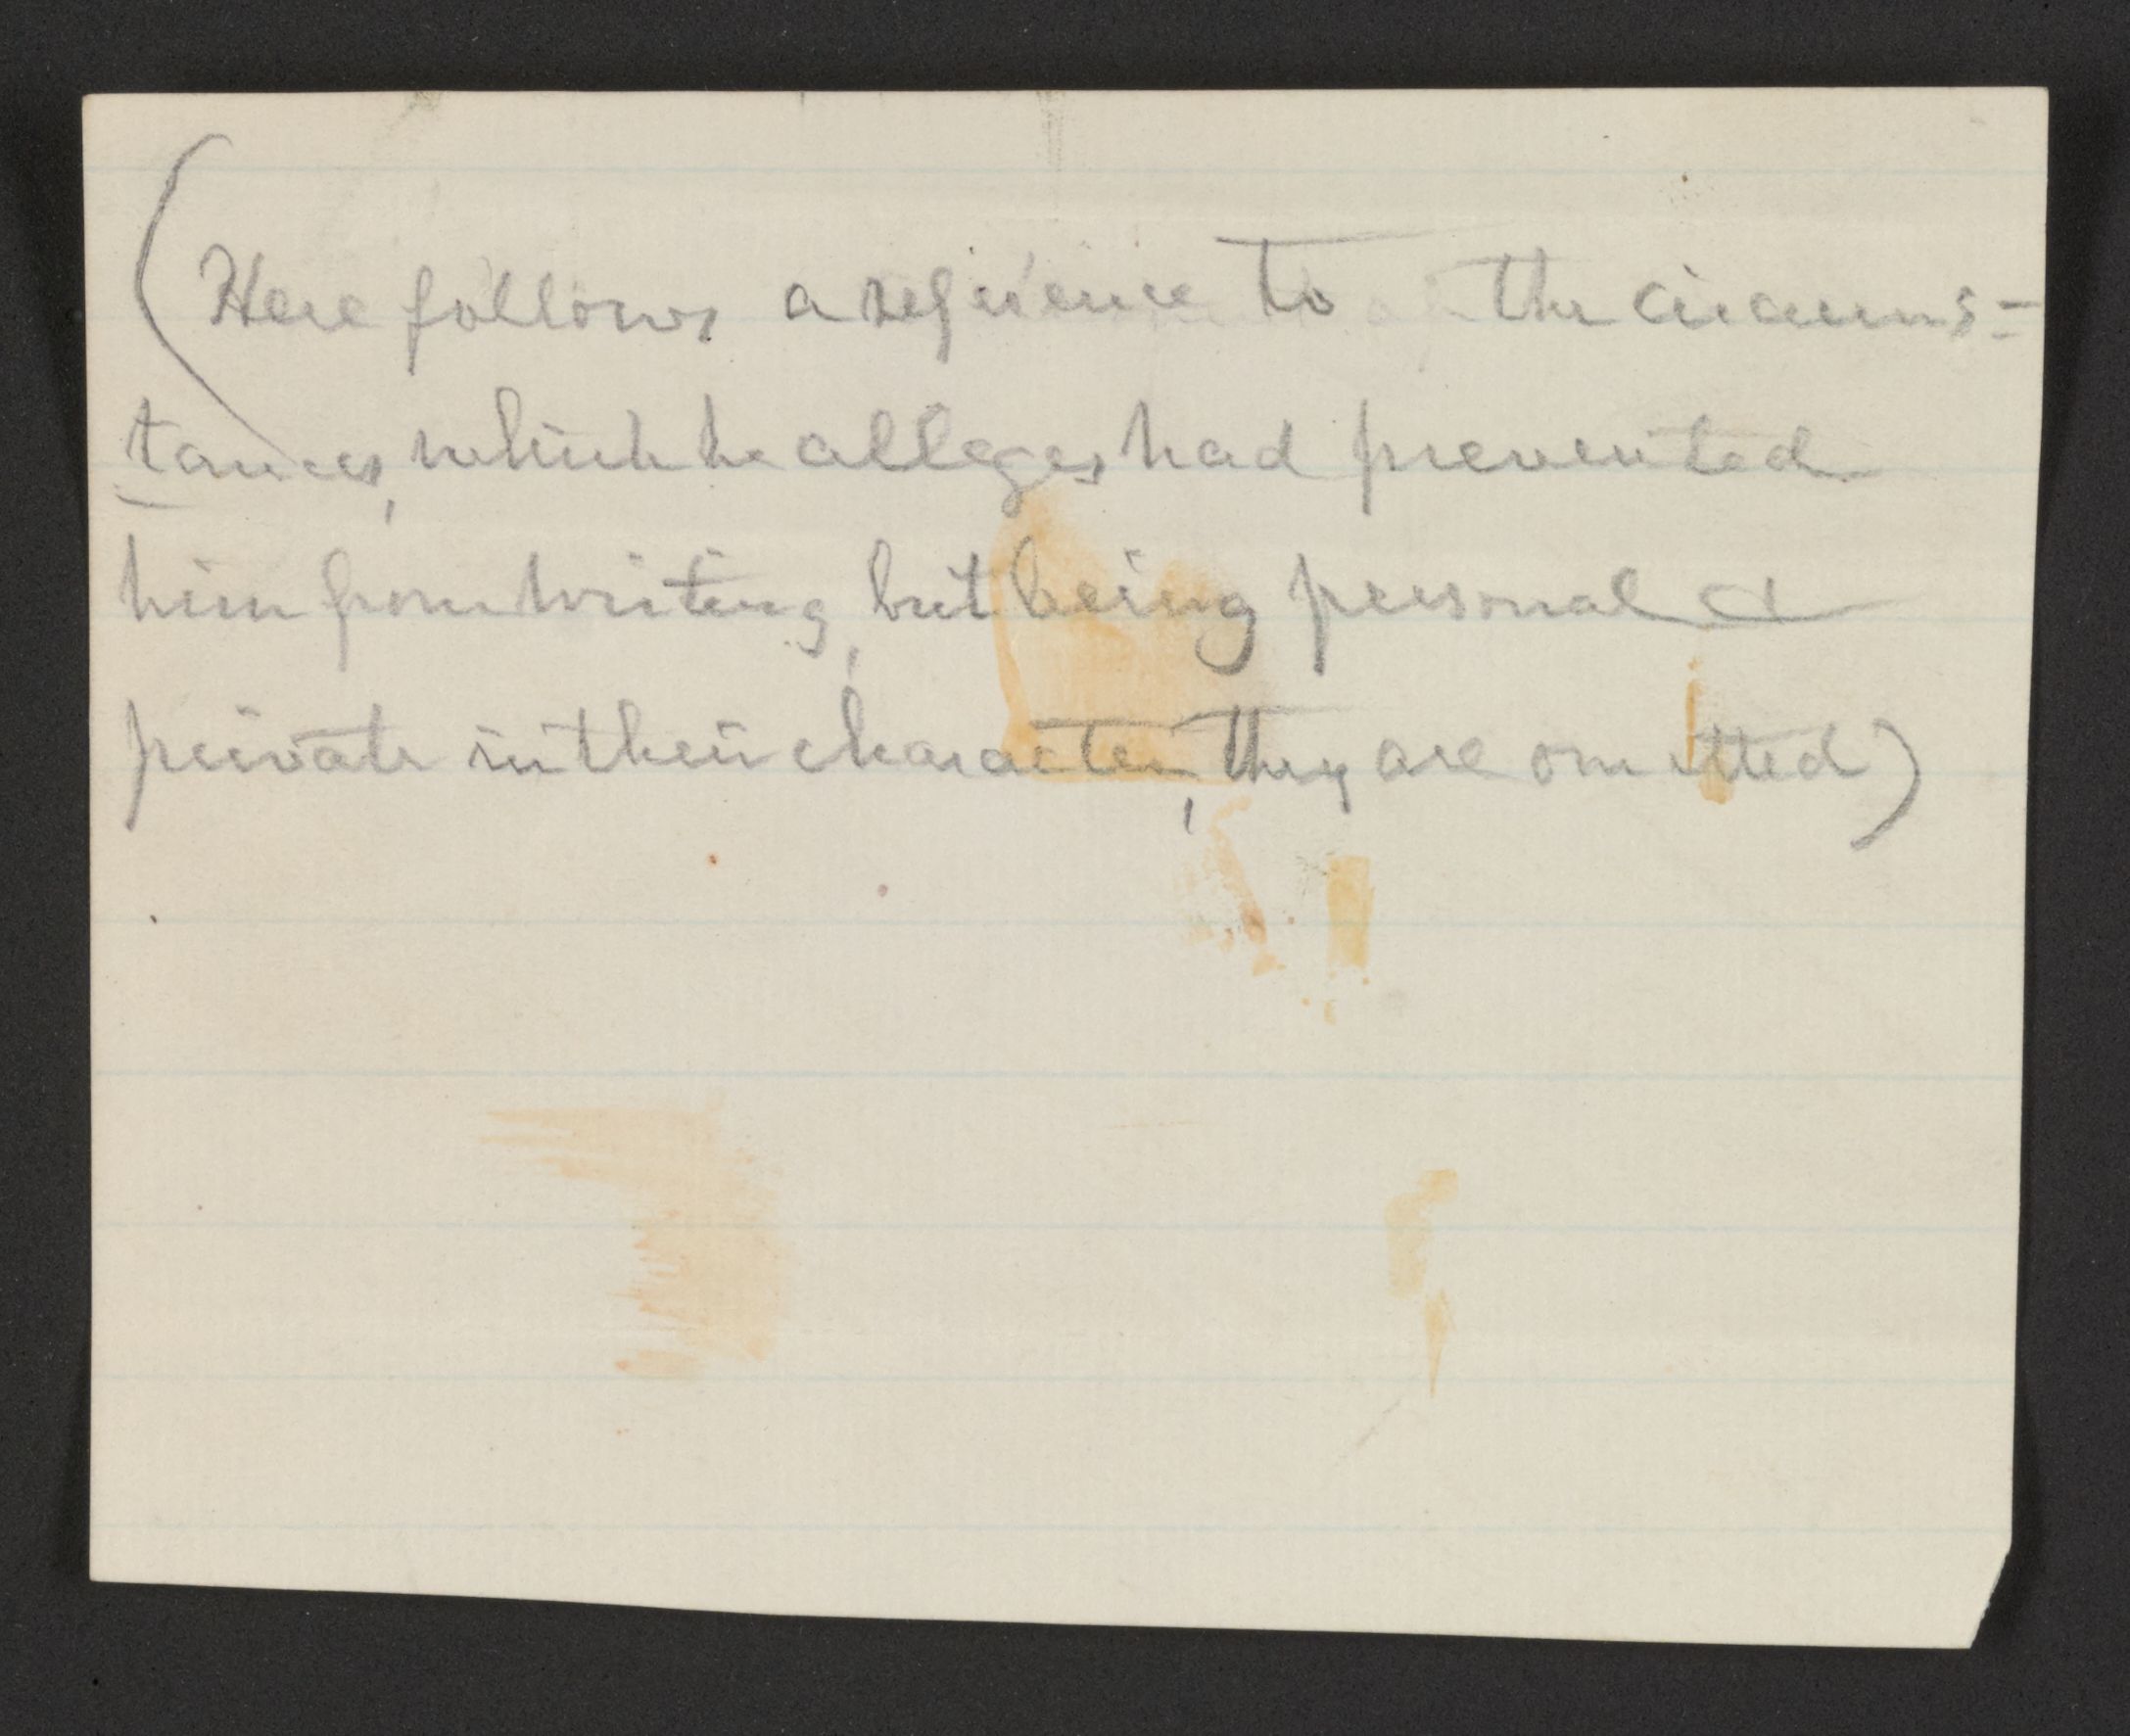 (Here follows a reference to the circums=
tances, which he alleges had prevented
him from writing, but being personal &
private in their character, they are omitted)